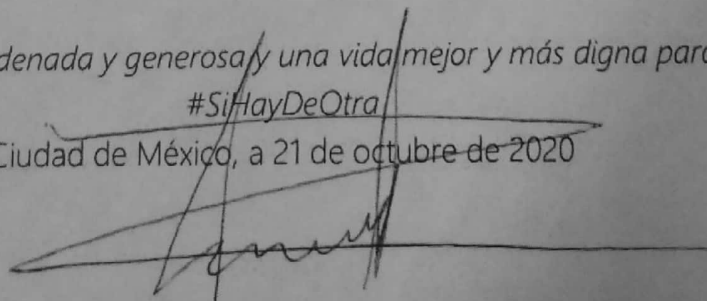 denada y generosa y una vida mejor y más digna para
#SiHayDeOtra
Ciudad de México, a 21 de octubre de 2020